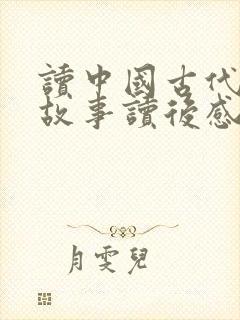 讀中國古代
故事讀後感
月雯兒